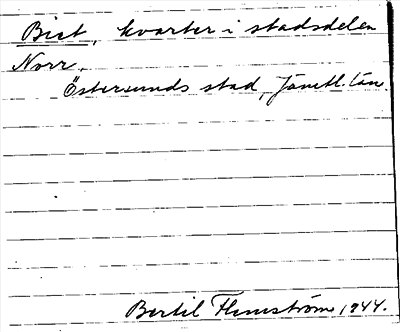 Biet, kvarter i stadsdelen
Norr,
Östersunds stad, Jämtl. län.
Bertil Flemström 1944.